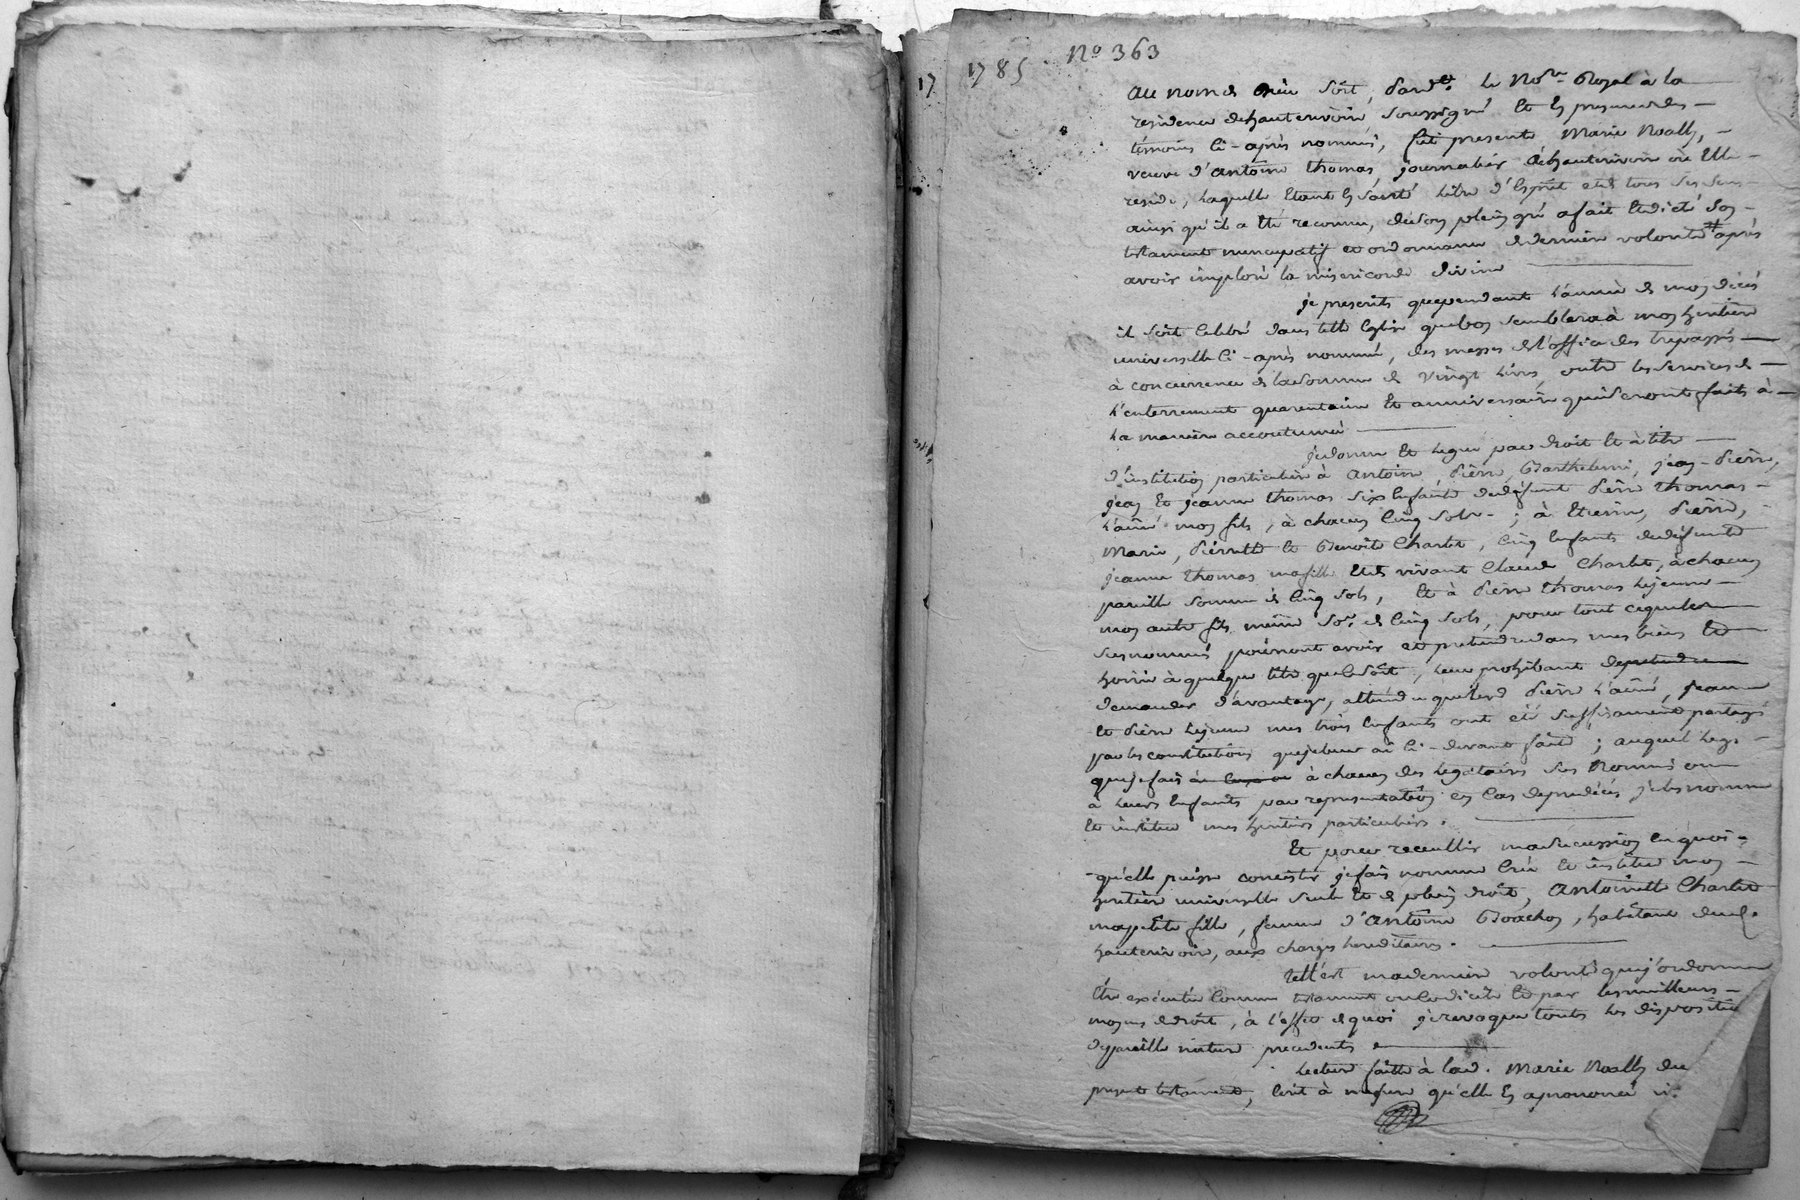 17
1785 . No 363
Au nom de Dieu soit, Pard.t le No.re Royal à la
residence de hauterivoire soussigné et en presence des
témoins ci-après nommés, fut presente Marie Noally,
veuve d'antoine thomas, journalier d'hauterivoire où elle
reside, Laquelle etant en santé libre d'esprit et de tous ses sens
ainsi qu'il a été reconnu, de son plein gré a fait et dicté son
testament nuncupatif et ordonnance de derniere volonté # après
avoir imploré la misericorde divine
je prescrits que pendant l'année de mon décés
il soit celebré dans telle Eglise que bon semblera à mon heritiere
universelle ci-après nommée, des messes de l'office des trepassés
à concurrence de la somme de vingt livres outre les services de
l'enterrement quarentaine et anniversaire qui seront faits à
La maniere accoutumée
je donne et legue par droit et à titre
d'institution particuliere à Antoine, Pierre, Barthelemi, jean-Pierre,
jean et jeanne thomas six enfants de défunt Pierre thomas
l'ainé mon fils, à chacun cinq sols ; à Etienne, Pierre,
Marie, Pierrette et Benoite Charlet, cinq enfants de defunte
jeanne thomas ma fille et de vivant Claude Charlet, à chacun
pareille somme de cinq sols, et à Pierre thomas le jeune
mon autre fils même So.e de cinq sols, pour tout ce que les
susnommés pourront avoir et pretendre dans mes biens et
hoirie à quelque titre que ce soit, leur prohibant de pretendre
demander d'avantage, attendu que led Pierre l'ainé, jeanne
et Pierre le jeune mes trois enfants ont été suffisament partagés
par les constitutions que je leur ai ci-devant faites ; auquel legs
que je fais à chacun des legataires sus nommés ou
à leurs Enfants par representation en cas de predecés je les nomme
et institue mes heritiers particuliers .
Et pour receuillir ma succession en quoi
qu'elle puisse consister je fais nomme crée et institue mon
heritiere universelle seule et de plein droit, Antoinette Charlet
ma petite fille, femme d'Antoine Bouchon, habitant dud.
hauterivoire, aux charges hereditaires .
tell'est ma derniere volonté que j'ordonne
être exécutée comme testament ou codicile et par les meilleurs
moyens de droit, à l'effet de quoi je revoque toutes les dispositio
de pareille nature precedentes
Lecture faitte à lad. Marie Noally du
present testament, ecrit à mesure qu'elle l'a prononcé